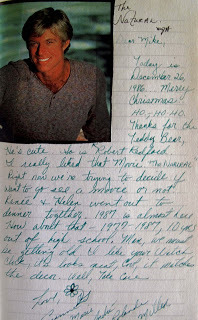 The
Natural
Dear Mike,
Today is
December 26,
1986. Merry
Christmas!
HO, HO HO.
Thanks for the
Teddy Bear,
He's cute. So is Robert Redford.
I really liked that Movie The NATURAL
Right now we're trying to decide if
we want to go see a movie or not.
& Helen went out to
dinner together. 1987 is almost here
How about that - 1977 - 1987, 10 years
out of high school. Man, we must
be getting old. I like your
it looks great, it matches
the decor. Well, Take Care
Love